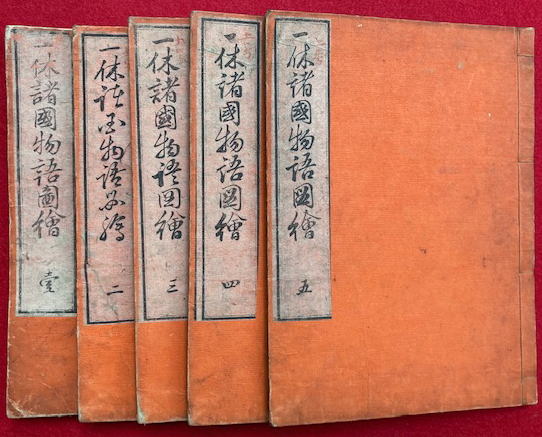 一休諸國物語圖繪 壹
一休諸国物語図繪 二
一休諸國物語図繪 三
一休諸國物語圖繪 四
一休諸國物語圖繪 五